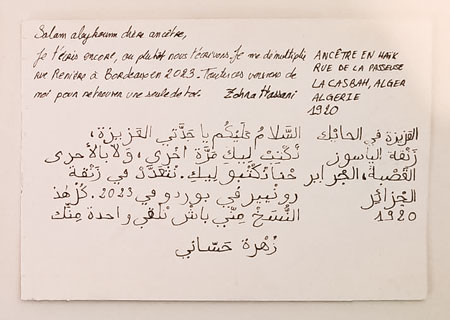 Salam aleykoum chère ancêtre,
Je t'écris encore, ou plutôt nous t'écrivons. Je me démultiplie
rue Renière à Bordeaux en 2023. Toutes ces versions de
moi pour retrouver une seule de toi. Zohra Hassani
ANCÊTRE EN HAÏK
RUE DE LA PASSEUSE
LA CASBAH, ALGER
ALGERIE
1920
السَّلامُ عَلَيْكُم يا جَدَّتي العَزيزة،
نَكْتِبْ لِيك مَرَّة أخرى، ولّا بالأحرى
حْنا نَكَتْبو لِيكِ. نَتْعَدَّد في زَنْقة
رونْيير في بوردو في 2023. كُلّ هٰذ
النُّسَخ مِنّي باشْ نَلْقى واحدة مِنّك
زُهْرة حَسّاني
العَزيزة في الحايْك
زَنْقة الپاسوز
القَصْبة، الجْزاير
الجْزائر
1920